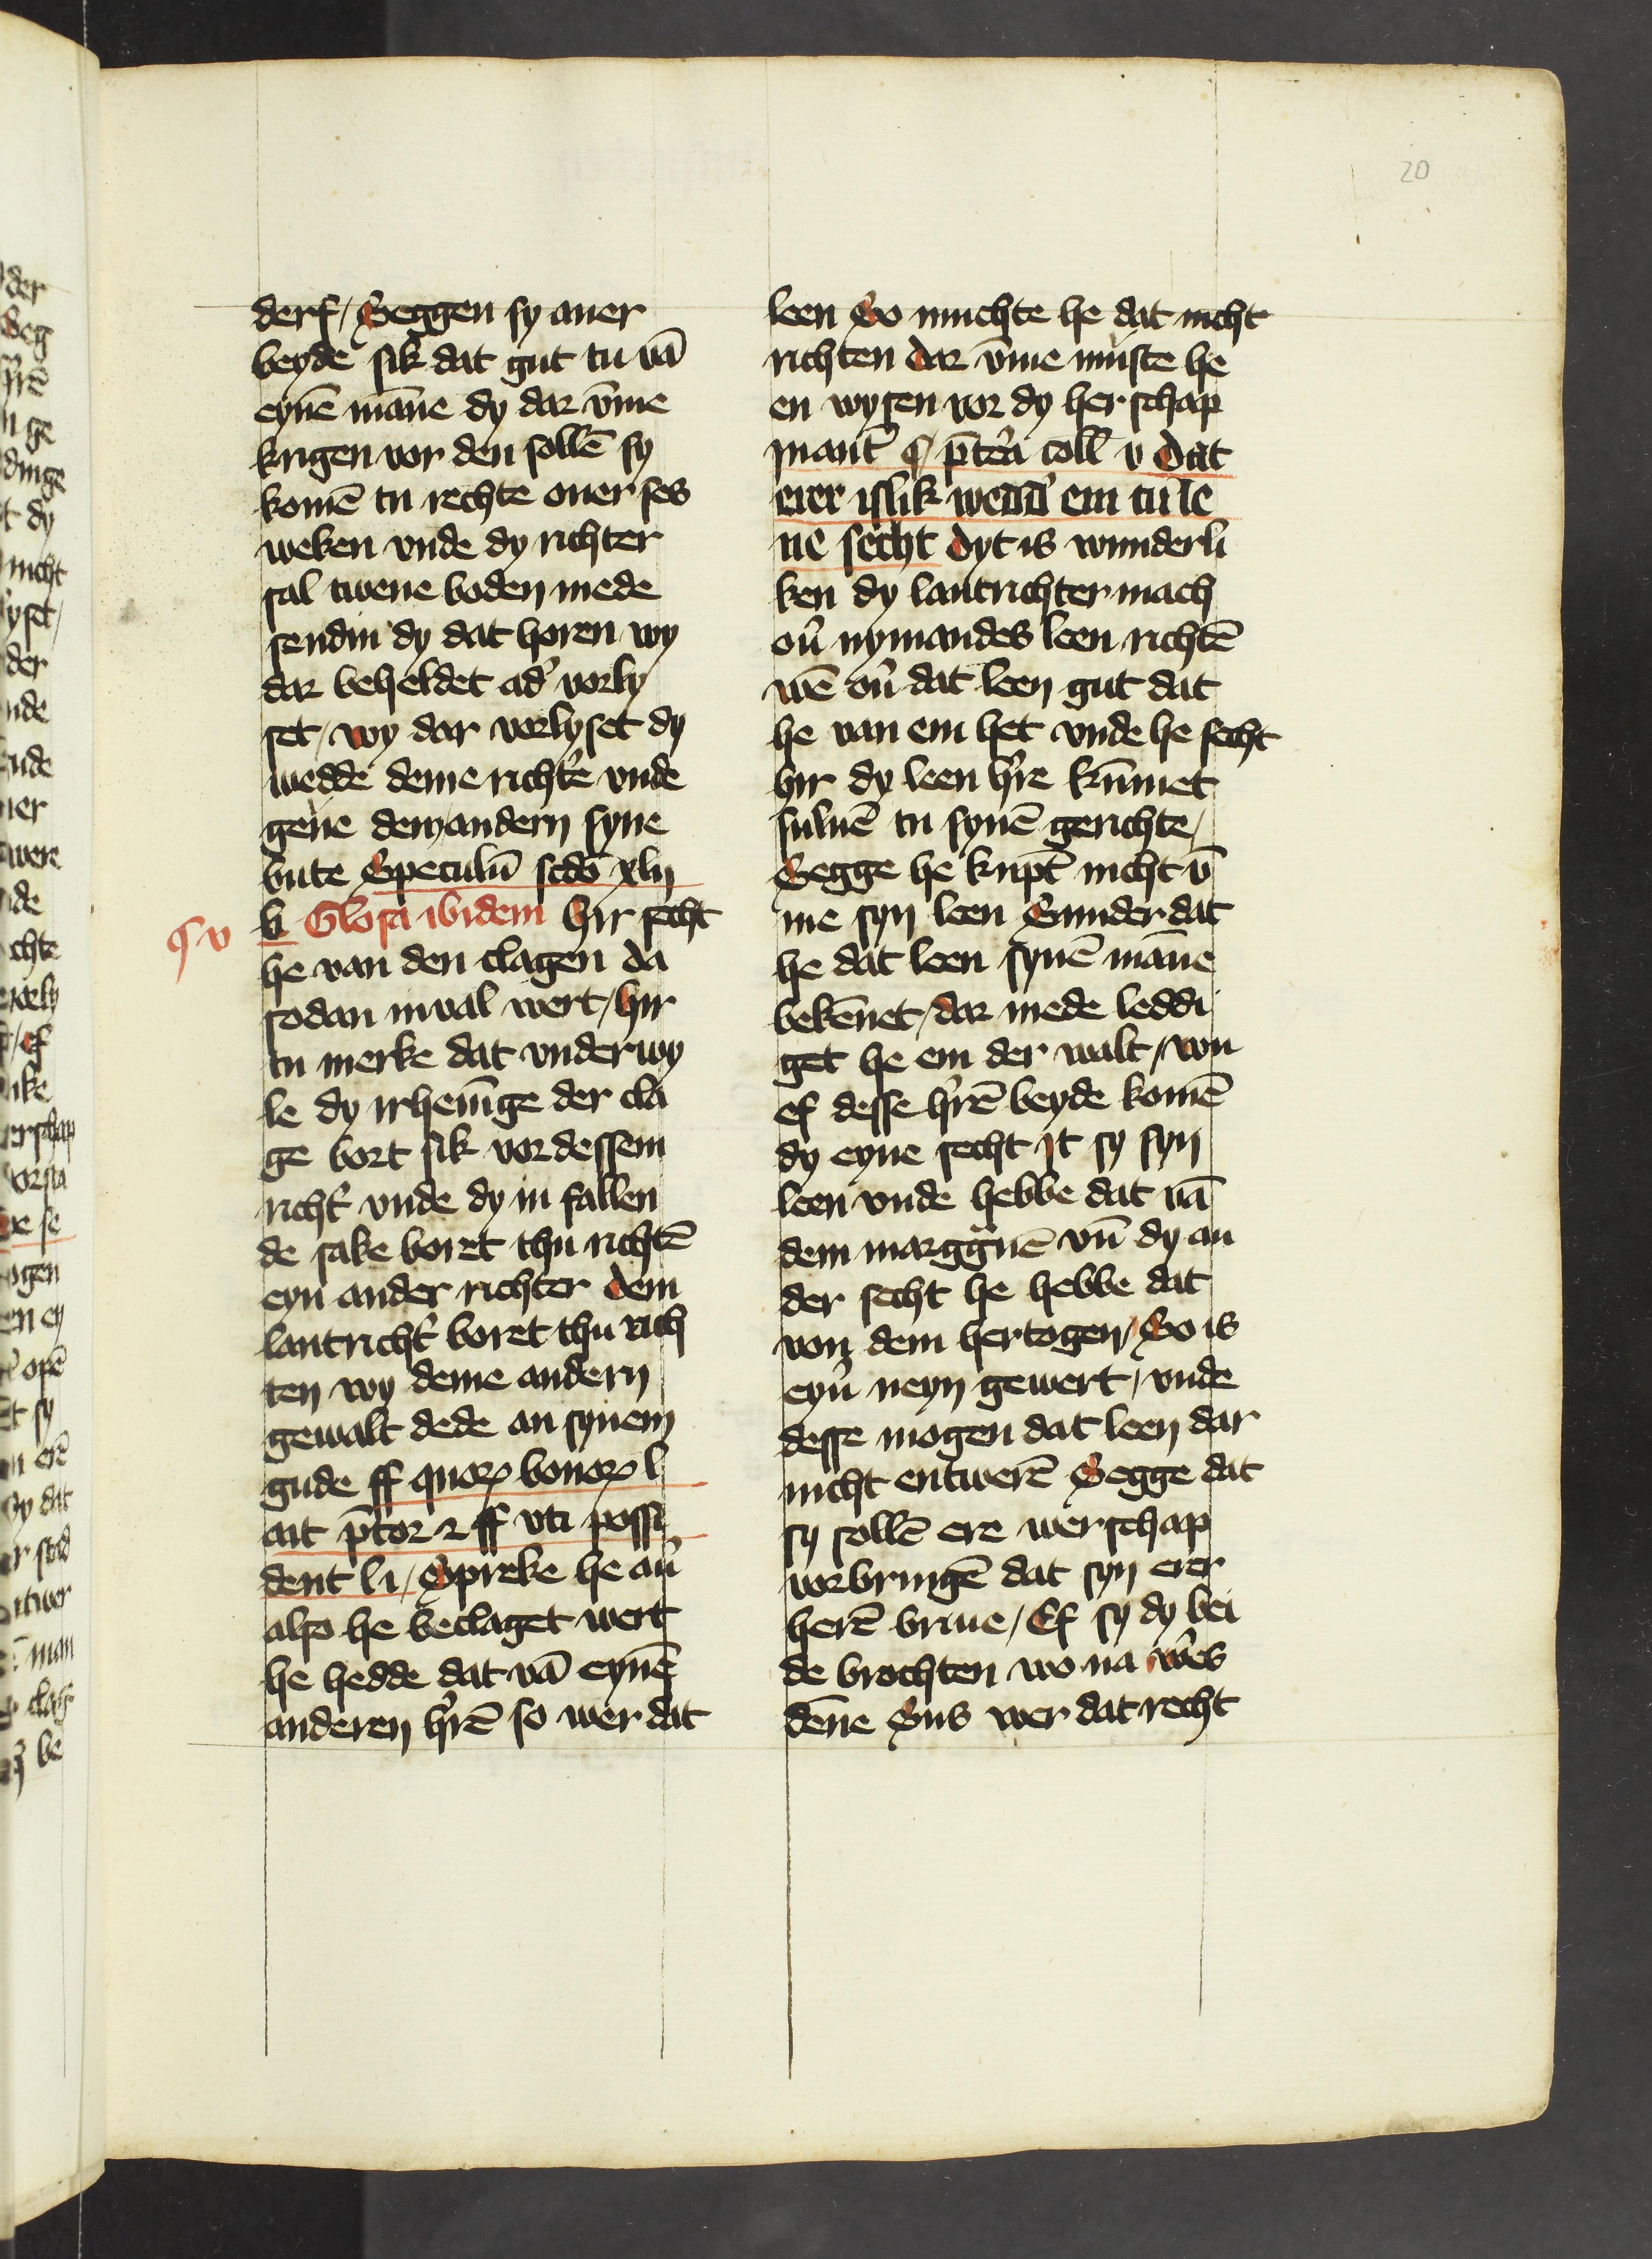 20
derf / Seggen sy auer
beyde sik dat gut tu vā
eynē māne dy dar v̄me
krigen vor den sollē sy
komē tu rechte ouer ses
weken vnde dy richter
sal twene boden mede
sendin dy dat horen wy
dar beheldet ad' vorly
set / wy dar vorlyset dy
wedde deme richt'e vnde
geue dem andern syne
bute Speculū scdō xlij
§ v b Glosa ibidem Hir secht
he van den clagen da
sodan inval wert / hir
tu merke dat vnderwy
le dy irheuīge der cla
ge bort sik vor dessem
richt' vnde dy in fallen
de sake boret thu richtē
eyn ander richter dem
lantricht' boret thu rich
ten wy deme andern
gewalt dede an synem
gude ff quoꝝ bonoꝝ l
ait p̄tor ⁊ ff vti possi
dent l i / Spreke he au'
also he beclaget wert
he hedde dat vā eynē
anderen h'rē so wer dat
leen So muchte he dat nicht
richten dar v̄me muste he
en wysen vor dy herschap
mant' § p̄t'ea coll' v Dat
erer islik wedd' em tu le
ne secht Dyt is wunderli
ken dy lantrichter mach
ou' nymandes leen richtē
wē ou' dat leen gut dat
he van em het vnde he secht
hir dy leen h're kūmet
suluē tu synē gerichte /
Segge he kupt' nicht v̄
me syn leen Sunder dat
he dat leen synē māne
bekēnet / dar mede leddi
get he em der walt / wu
ef desse h'rē beyde komē
dy eyne secht it sy syn
leen vnde hebbe dat vā
dem margguē vn̄ dy an
der secht he hebbe dat
von dem hertogen / So is
eyn' neyn gewert / vnde
desse mogen dat leen dar
nicht entwerē Segge dat
sy sollē ere werschap
vorbringē dat syn erer
herē briue / Ef sy dy bei
de brochten wo na w'es
dēne Sus wer dat recht